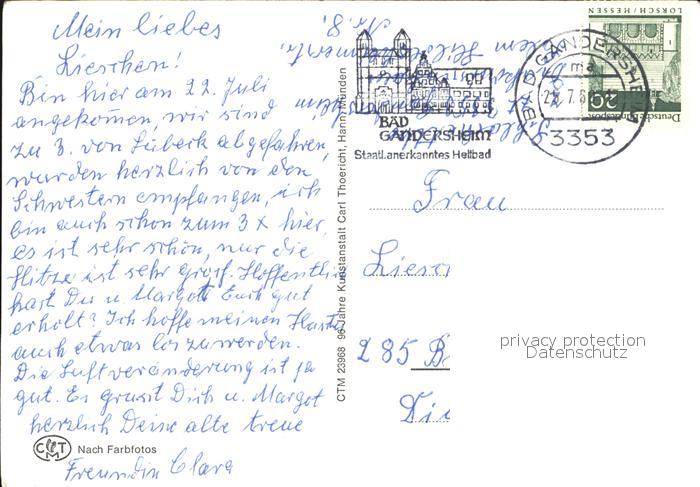 Mein liebes
Lieschen!
Bin hier am 22. Juli
angekommen, wir sind
zu 3. von Lübeck abgefahren,
wurden herzlich von den
Schwestern empfangen, ich
bin auch schon zum 3 x hier,
es ist sehr schön, nur die
Hitze ist sehr groß. Hoffentlich
hast Du u Margot Euch gut
erholt? Ich hoffe meinen Husten
auch etwas los zu werden.
Die Luftveränderung ist ja
gut. Es grüsst Dich u. Margot
herzlich Deine alte treue
Freundin Clara
CTM
Nach Farbfotos
CTM 23968 96 Jahre Kunstanstalt Carl Thoericht, Hann. Münden
Nr. 8.
BAD
GANDERSHEIM
Staatl. anerkanntes Heilbad
BAD GANDERSHEIM
ma
3353
LORSCH/HESSEN
20
Deutsche Bundespost
Frau
Liesc
285 B
Di
privacy protection
Datenschutz